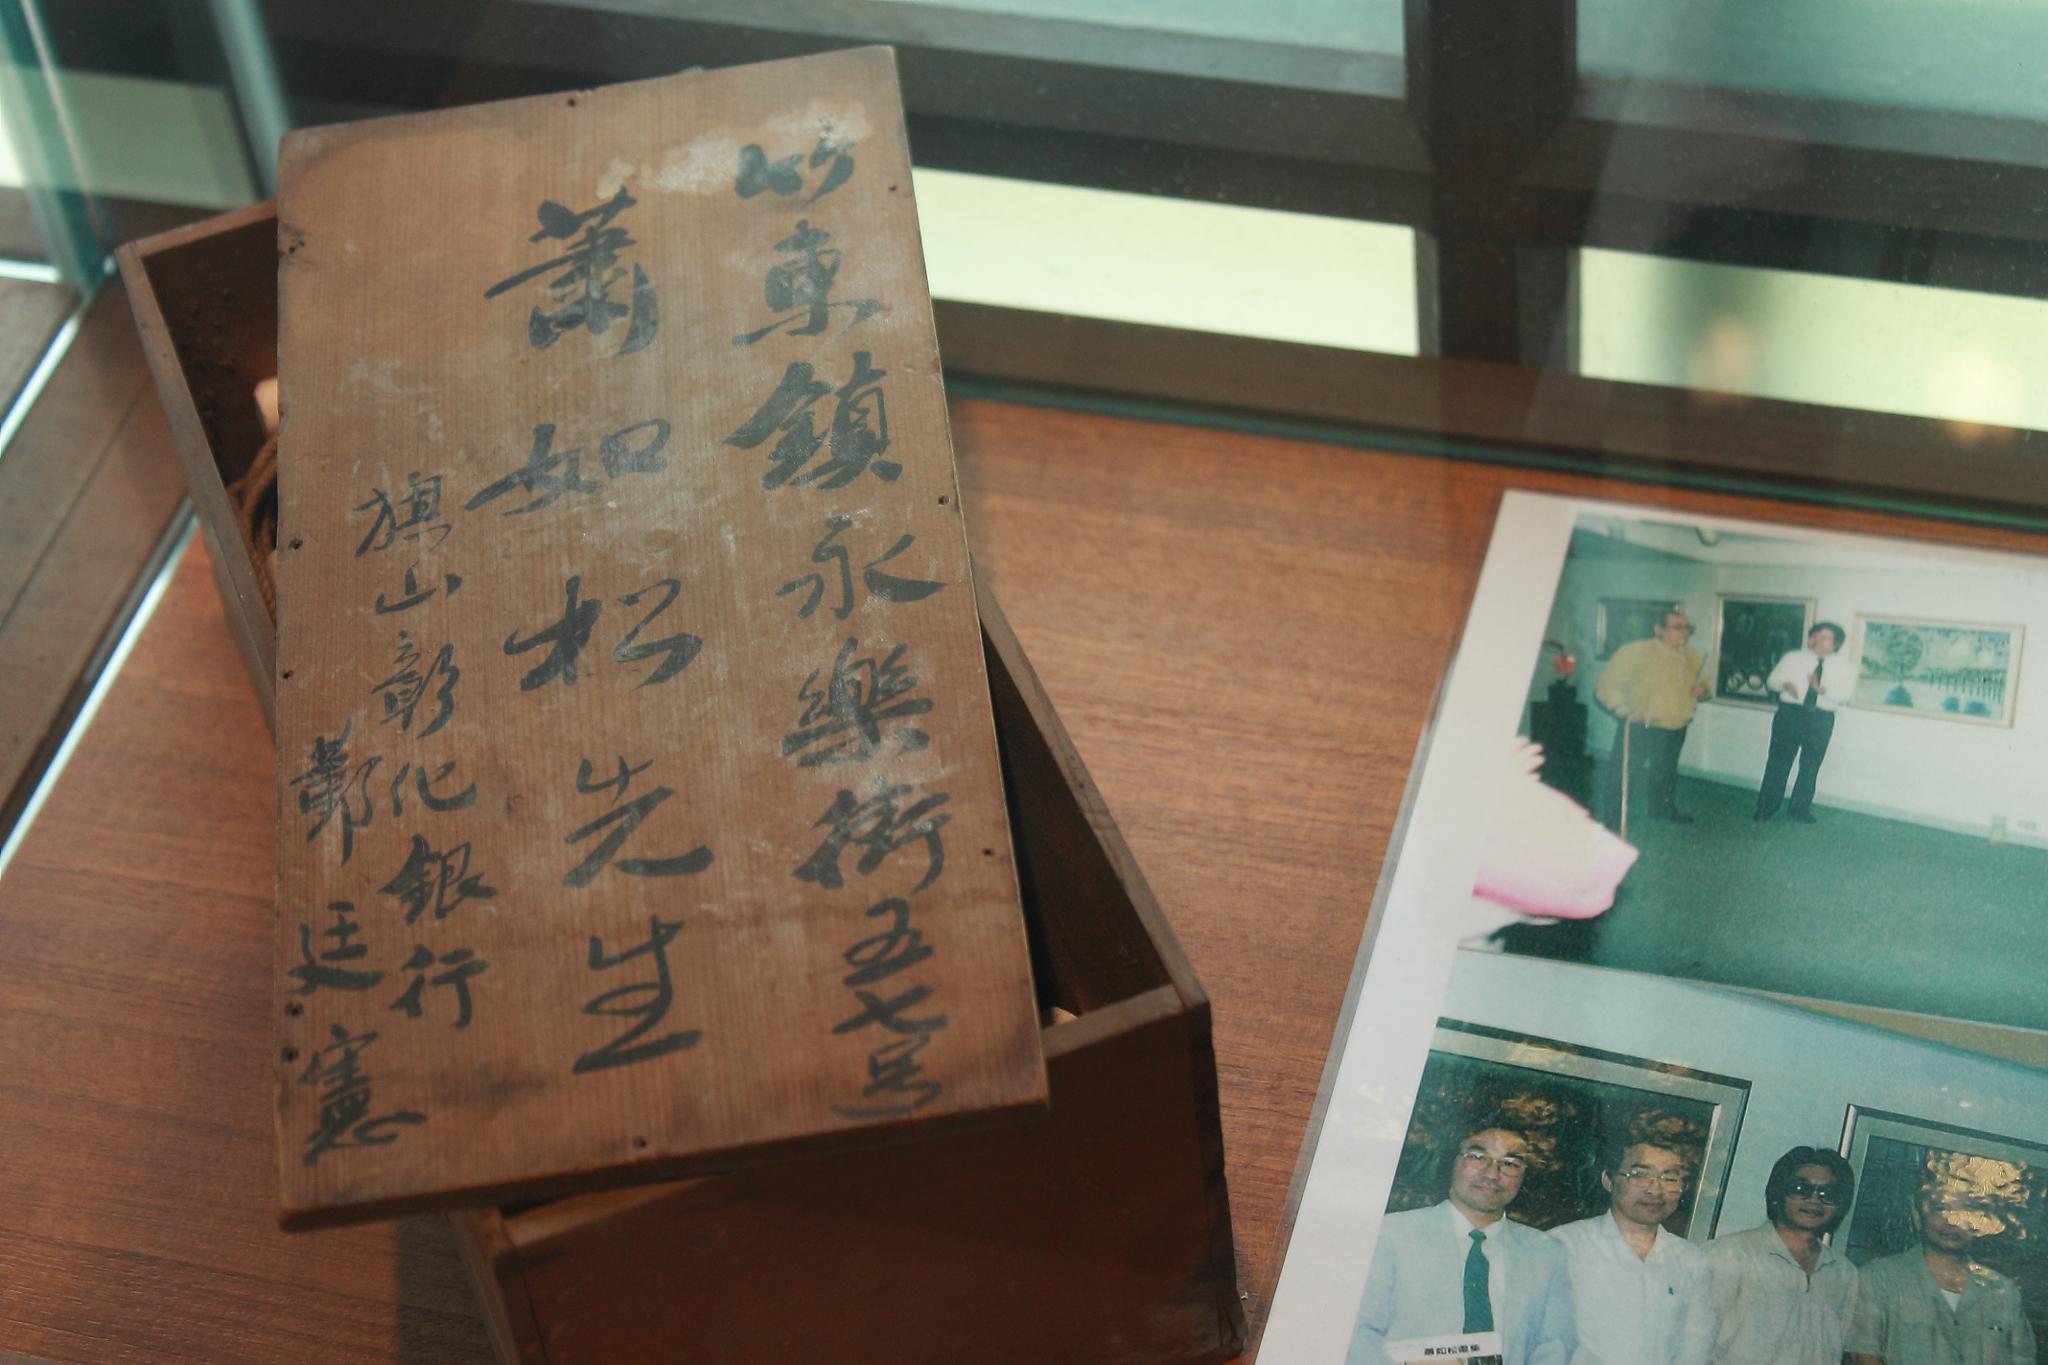 竹東鎮永樂街五七号
蕭如松先生
旗山彰化銀行
鄭廷憲
蕭如松畫集